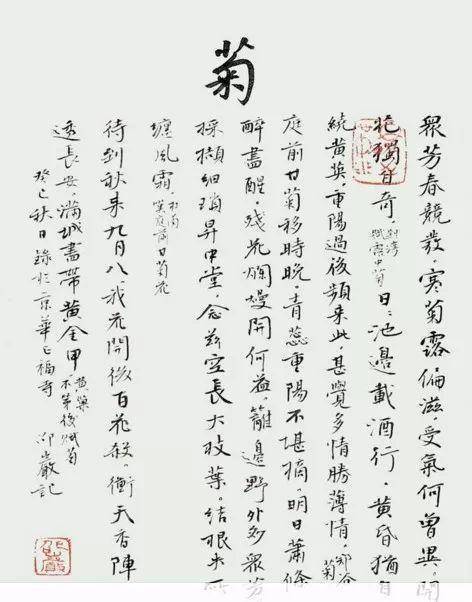 菊
眾芳春競發，寒菊露偏滋，受氣何曾異，開
花獨自奇，賦露中菊 日日池邊載酒行，黃昏猶自
繞黃英，重陽過後頻來此，甚覺多情勝薄情，鄭谷 菊
庭前甘菊移時晚，青蕊重陽不堪摘，明日蕭條
醉盡醒，殘花爛熳開何益，籬邊野外多眾芳
採擷細瑣昇中堂，念茲空長大枝葉。結根失所
纏風霜，杜甫 嘆庭前甘菊花
待到秋來九月八，我花開後百花殺。衝天香陣
透長安，滿城盡帶黃金甲 黃巢 不第後賦菊
癸巳秋日錄於京華正福寺 邱巖記